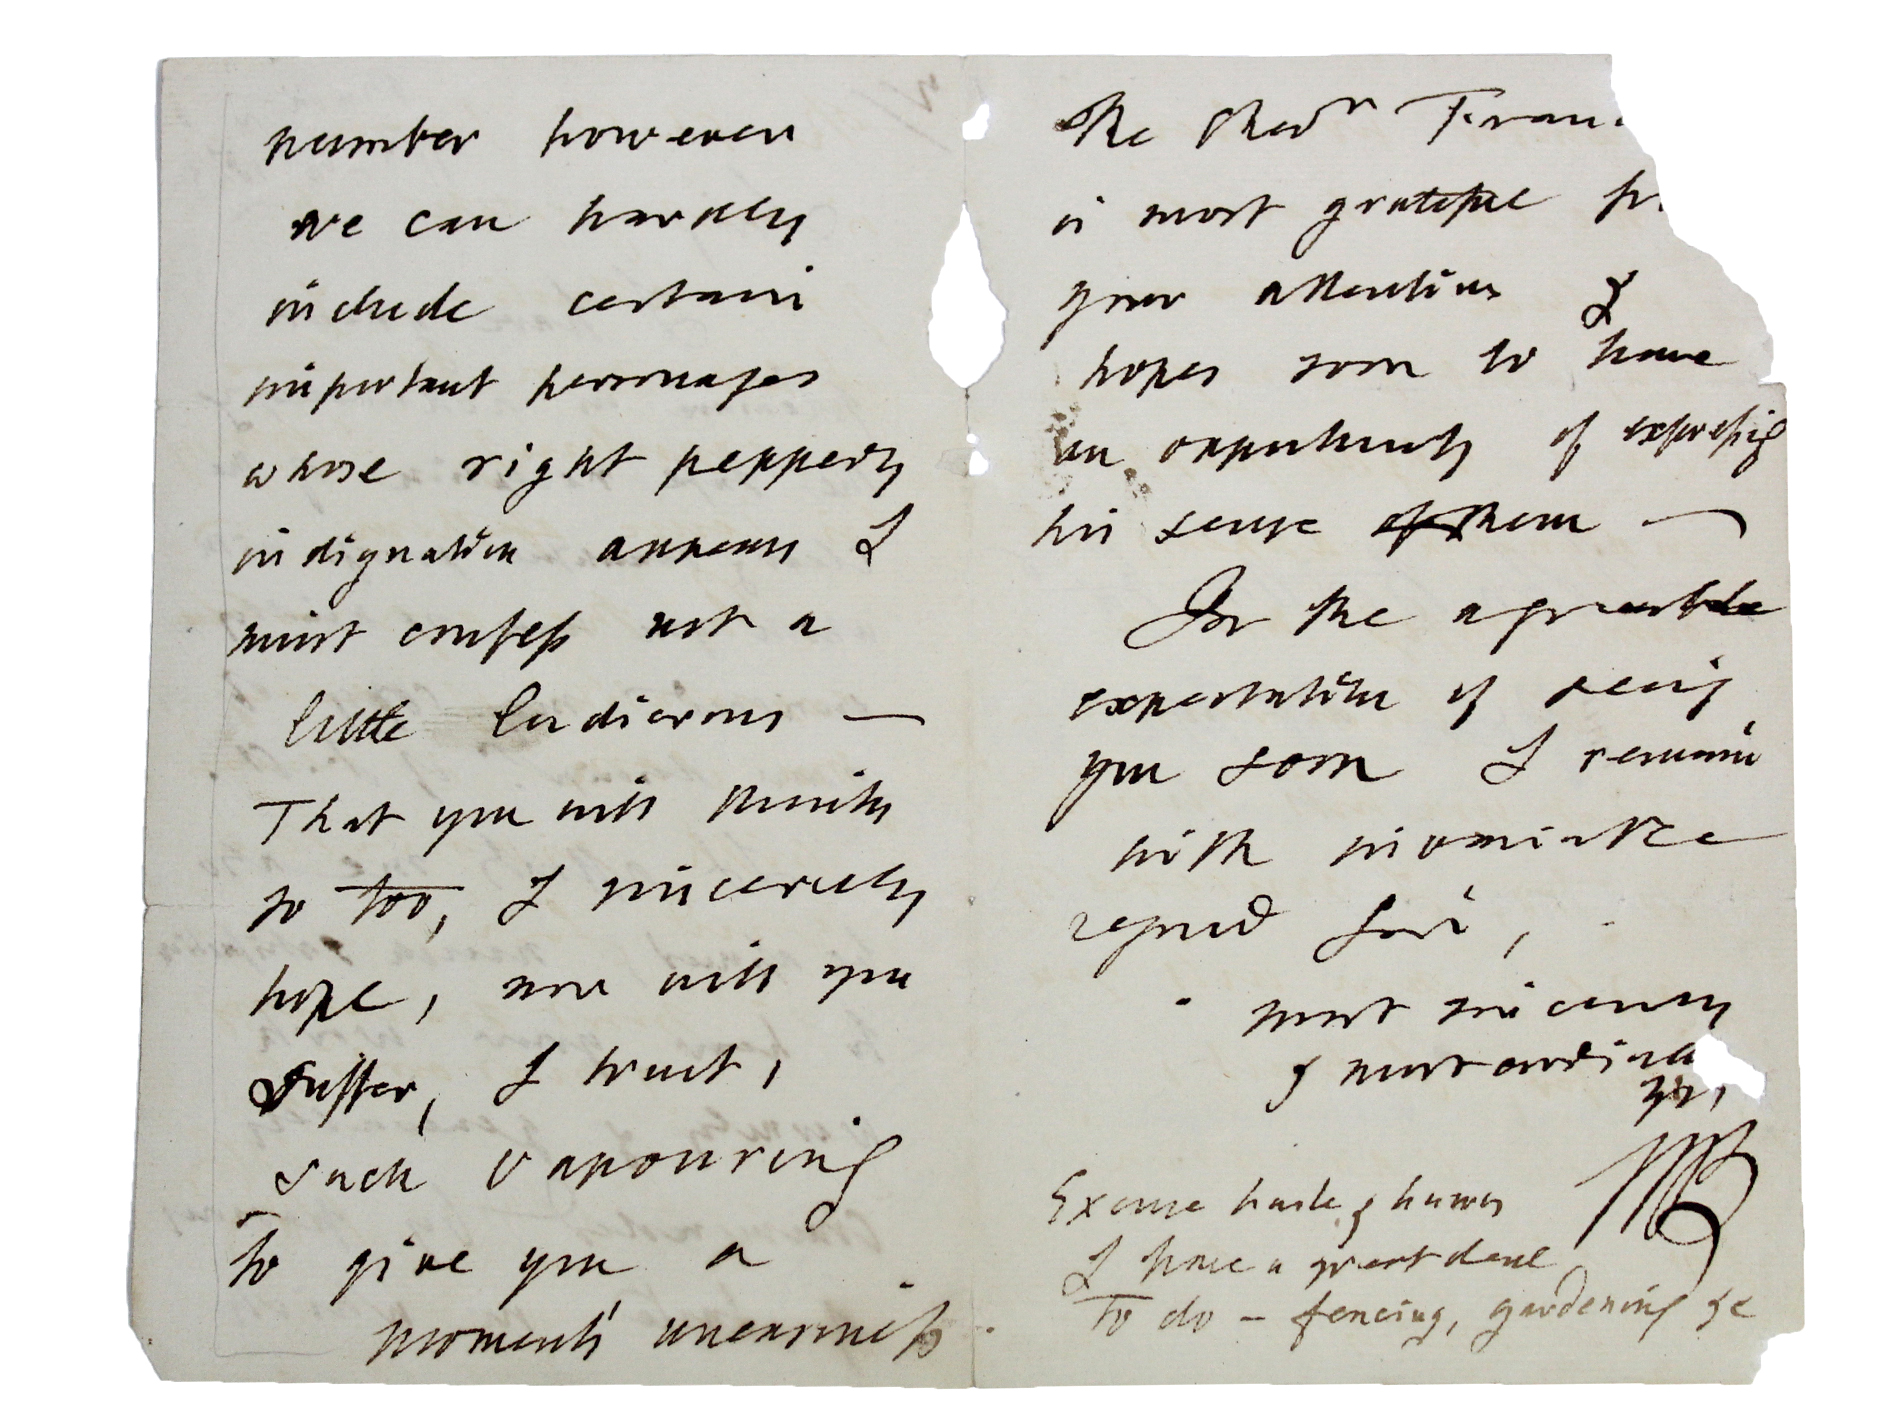 number however
we can hardly
include certain
important personages
whose right peppery
indignation appears I
must confess not a
little ludicrous —
That you will think
so too, I sincerely
hope, nor will you
suffer, I trust,
such vapouring
to give you a
moments' uneasiness
2/
The
is most grateful
your attentions &
hopes soon to have
an opportunity of expressig
his sense of them —
In the agreeable
expectation of seeing
you soon I remain
with inviolable
regard Sir,
most sincerely
& most cordia
yrs,
Excuse haste & hurry
I have a great deal
to do – fencing, gardening &c